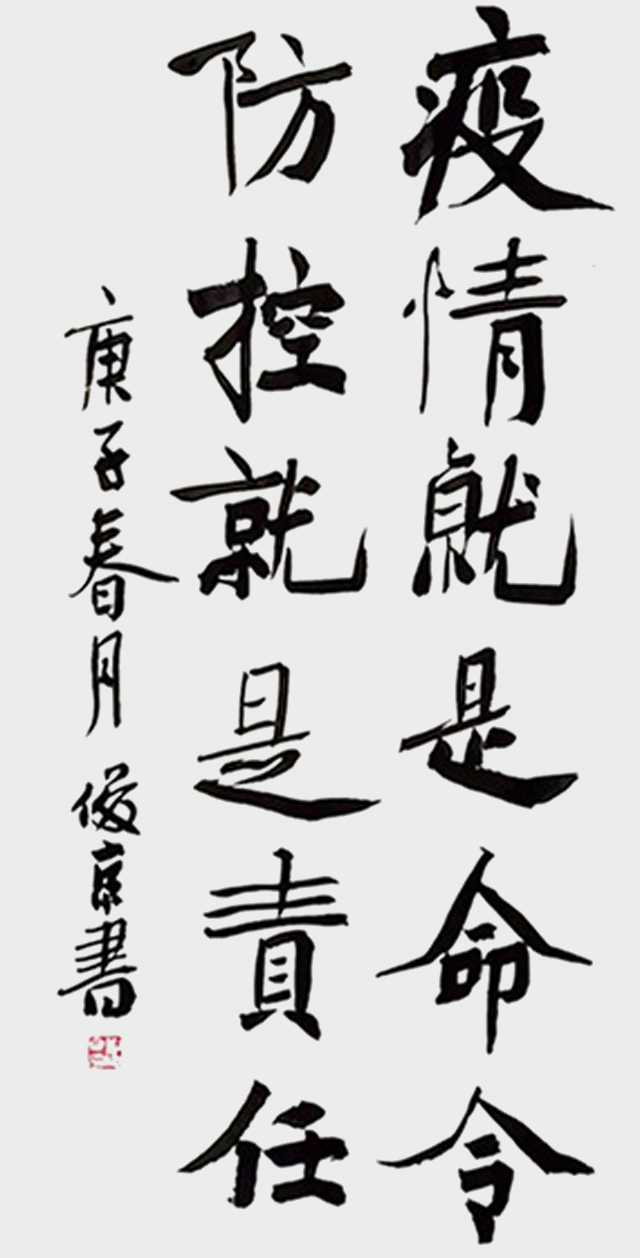 疫情就是命令
防控就是责任
庚子春月 俊京書